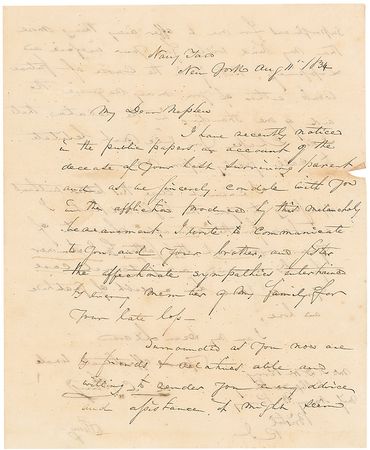 Navy Yard
New York Aug 11th 1834
My Dear Nephew
I have recently noticed
in the public papers an account of the
decease of your last surviving parent
and as we sincerely condole with you
in the affliction produced by this melancholy
bereavement, I write to communicate
to you and your brother, and sister
the affectionate sympathies entertained
by every member of my family for
your late loss—
Surrounded as you now are
by friends & relatives able and
willing to render you any advice
and assistance it might seem